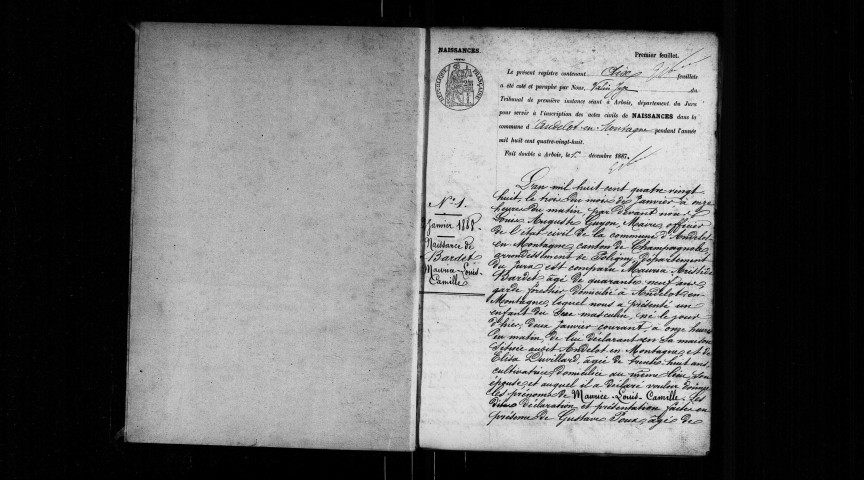 NAISSANCES.
Premier feuillet.
RÉPUBLIQUE FRANÇAISE
Le présent registre contenant feuillets
a été coté et paraphé par Nous, Juge du
Tribunal de première instance séant à Arbois, département du Jura
pour servir à l'inscription des actes civils de NAISSANCES dans la
commune d'Andelot-en-Montagne pendant l'année
mil huit cent quatre-vingt-huit.
Fait double à Arbois, le décembre 1887.
N° 1.
Janvier 1888.
Naissance de
Bardet
Maurice-Louis-
Camille
L'an mil huit cent quatre vingt
huit, le trois du mois de Janvier à onze
heures du matin, par devant nous
Louis Auguste Guyon, Maire, officier
de l'état civil de la commune d'Andelot-
en-Montagne, canton de Champagnole
arrondissement de Poligny, département
du Jura est comparu Aristide
Bardet âgé de quarante neuf ans
garde forestier domicilié à Andelot-en-
Montagne, lequel nous a présenté un
enfant du sexe masculin, né le jour
d'hier, deux Janvier courant à onze heures
du matin, de lui déclarant en sa maison
située audit Andelot en Montagne, et de
Elisa Duvillard, âgée de trente huit ans
cultivatrice, domiciliée au même lieu, son
épouse et auquel il a déclaré vouloir donner
les prénoms de Maurice-Louis-Camille. Les
dites déclaration et présentation faites en
présence de Gustave Poux, âgé de